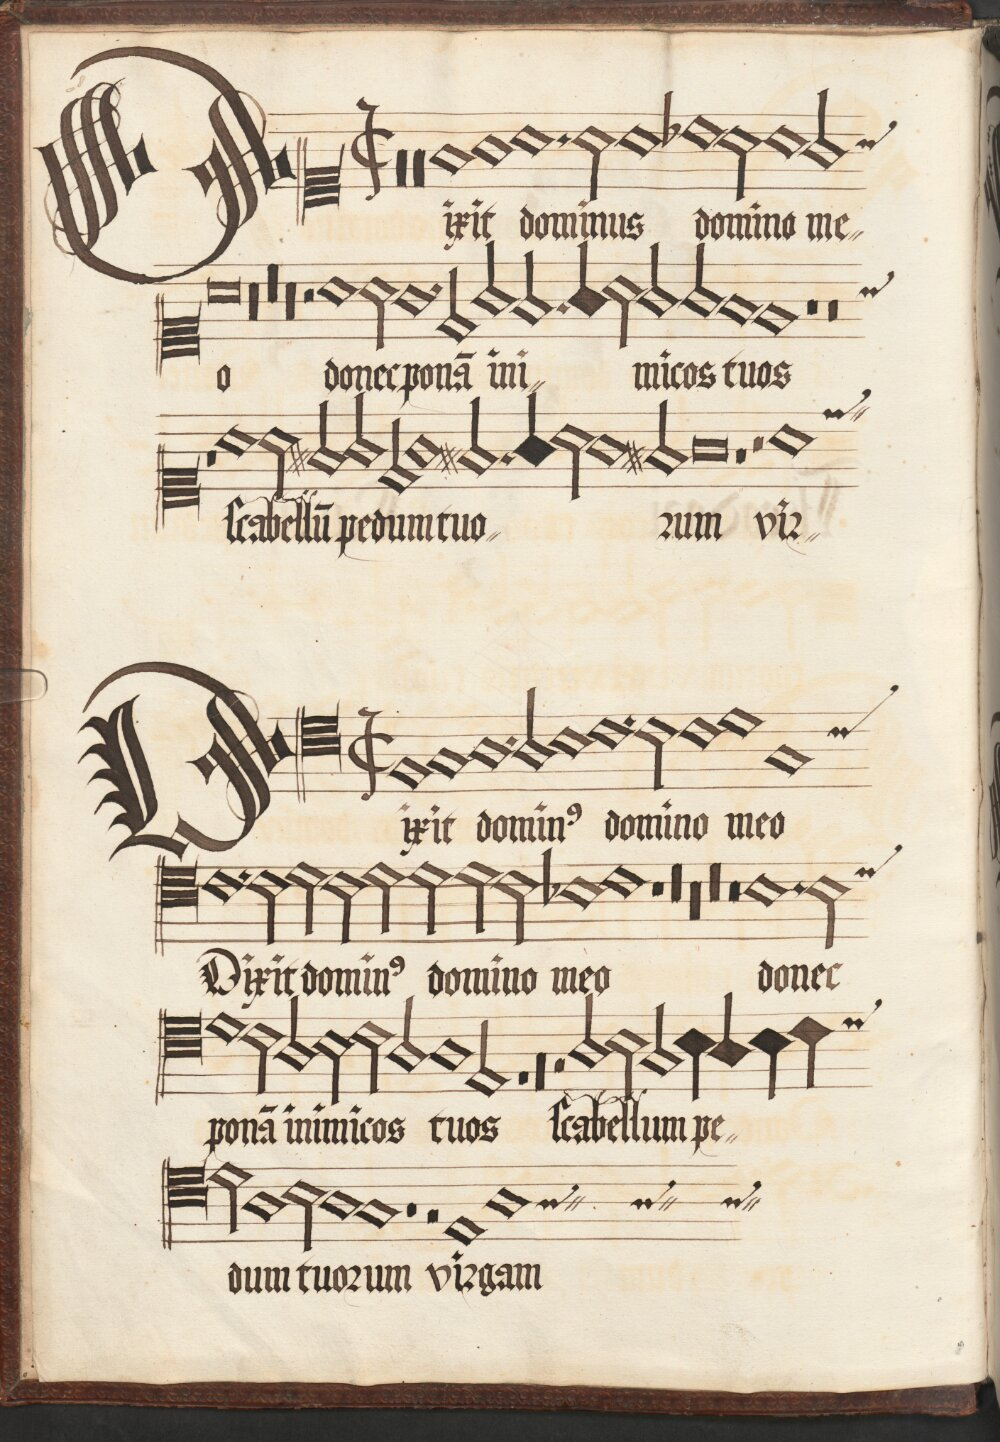 Dixit dominus domino me„
o donec ponā ini„ micos tuos
scabellū pedum tuo„ rum vir„
Dixit dominꝰ domino meo
Dixit dominꝰ domino meo donec
ponā inimicos tuos scabellum pe„
dum tuorum virgam